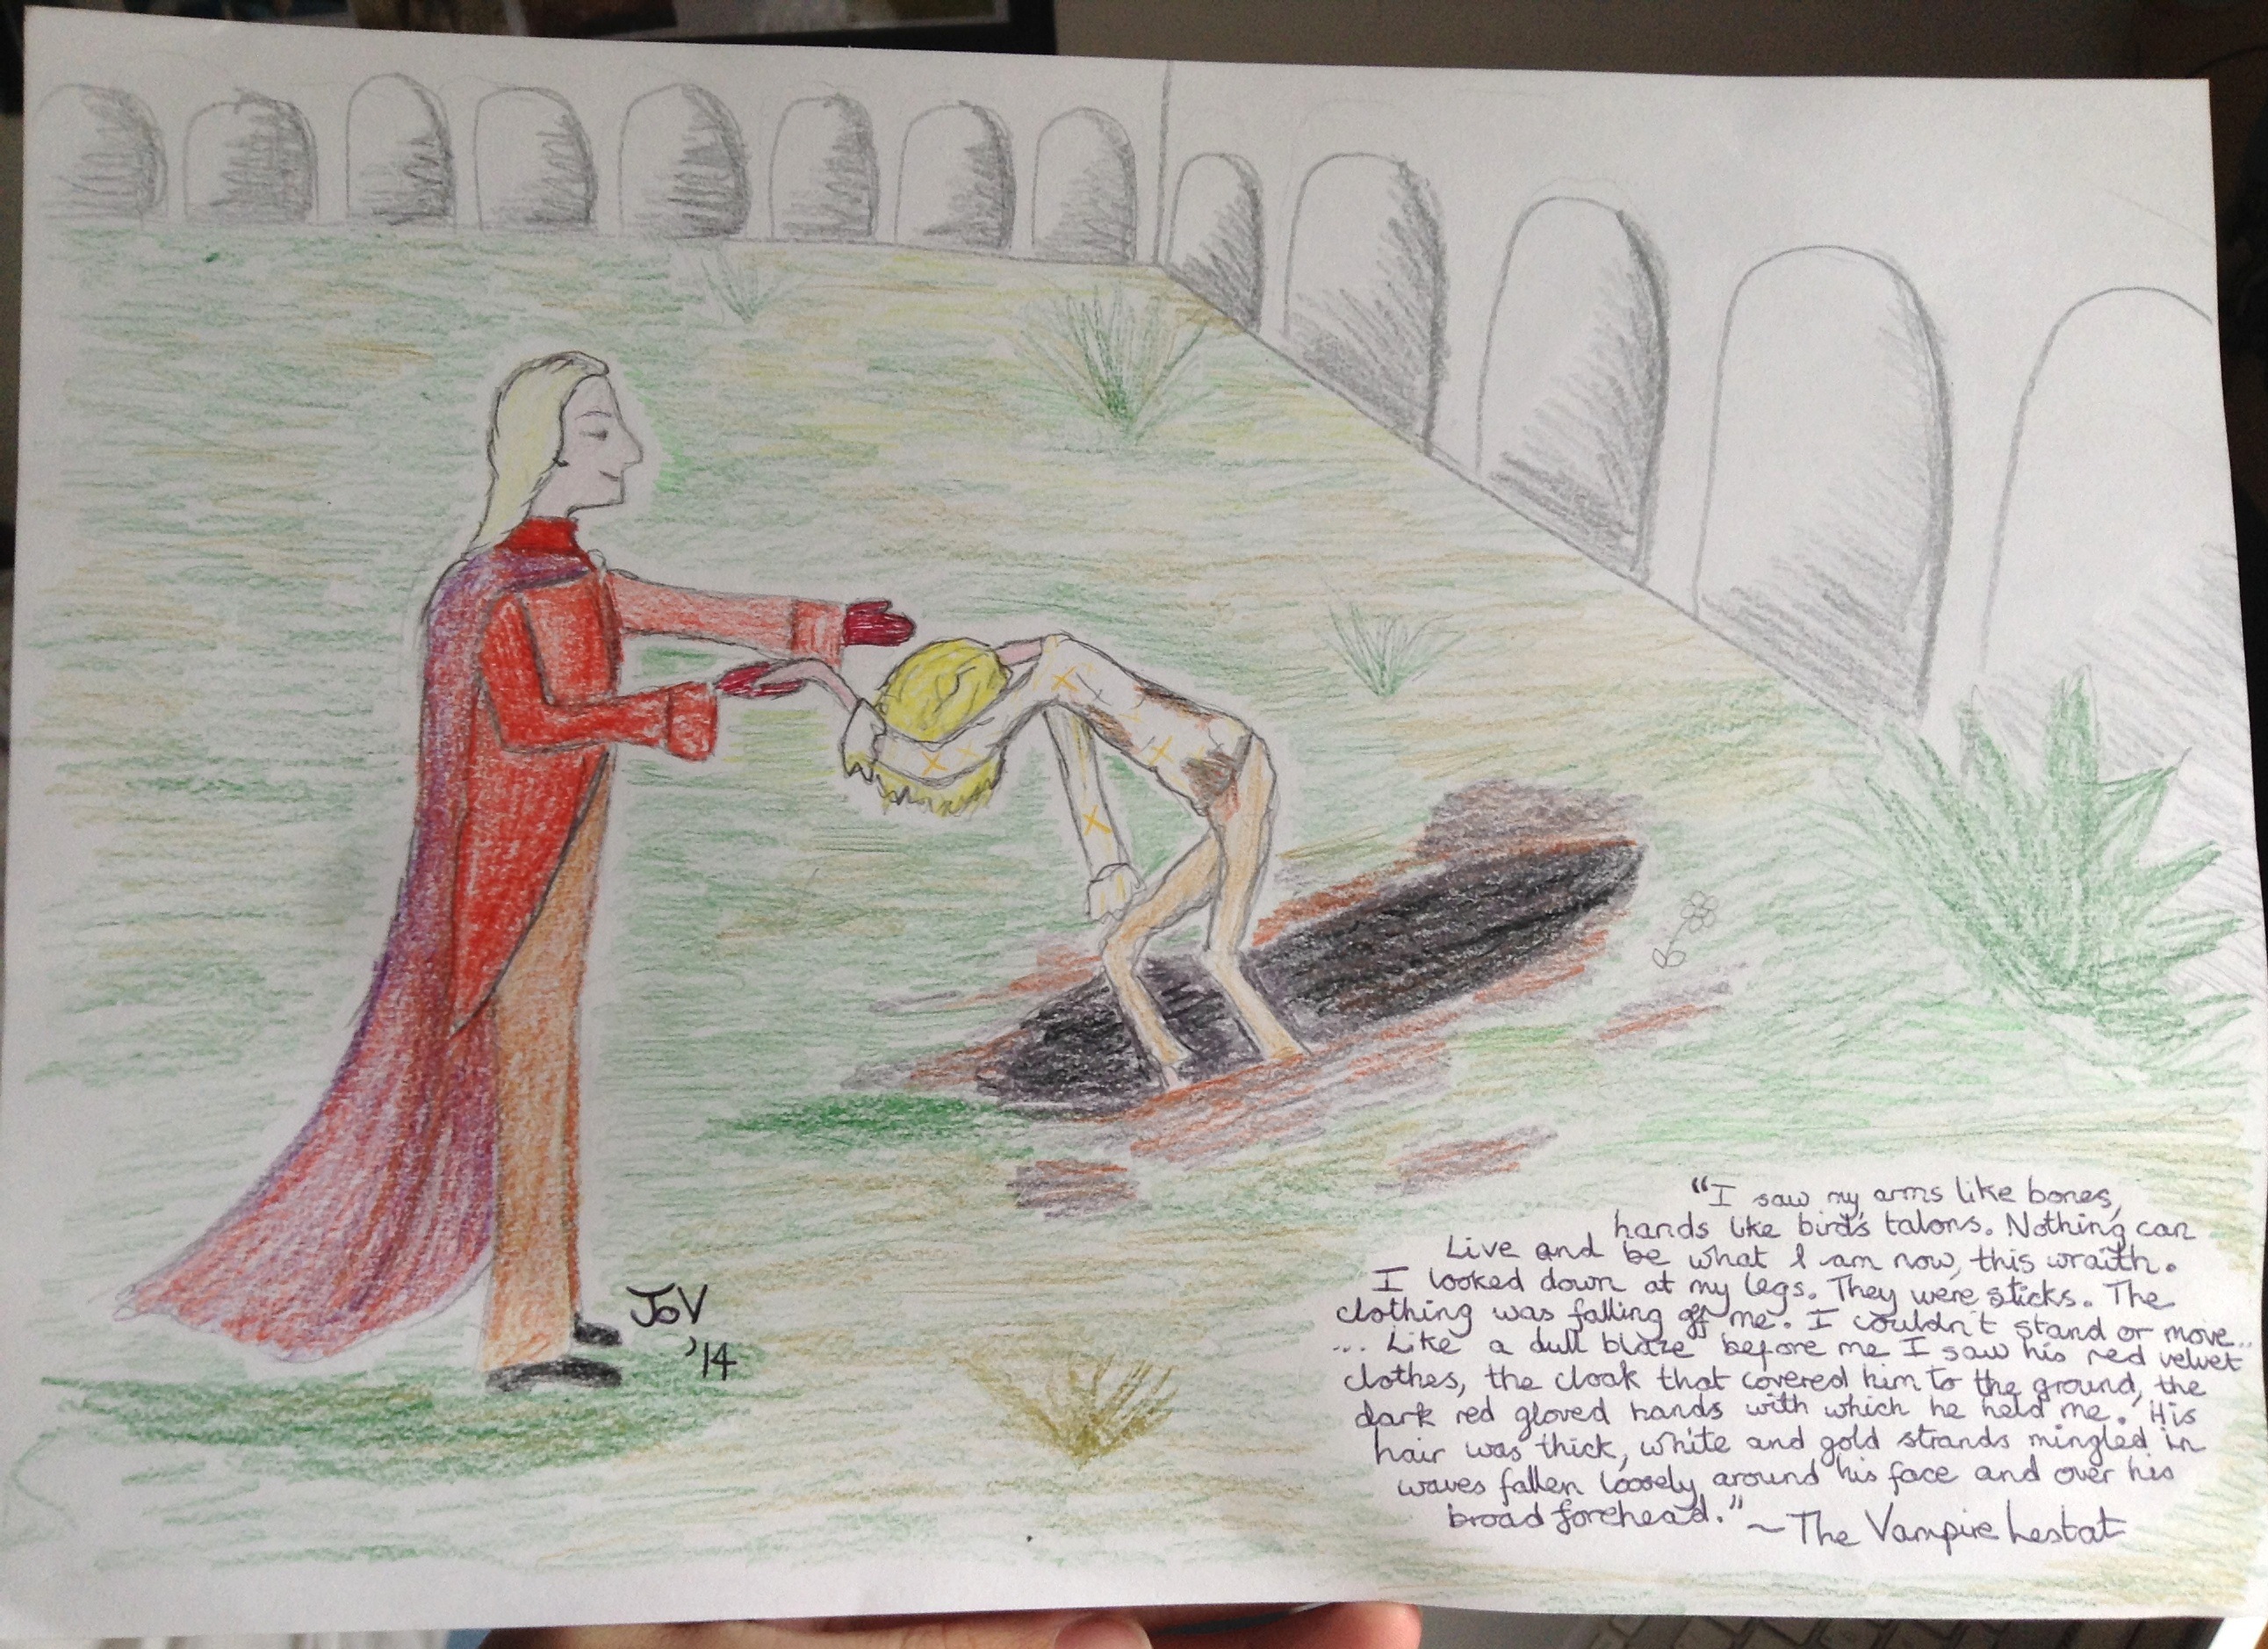 JoV
'14
"I saw my arms like bones,
hands like bird's talons. Nothing can
Live and be what I am now, this wraith.
I looked down at my legs. They were sticks. The
clothing was falling off me. I couldn't stand or move...
... Like a dull blaze before me I saw his red velvet
clothes, the cloak that covered him to the ground, the
dark red gloved hands with which he held me. His
hair was thick, white and gold strands mingled in
waves fallen loosely around his face and over his
broad forehead." ~ The Vampire Lestat